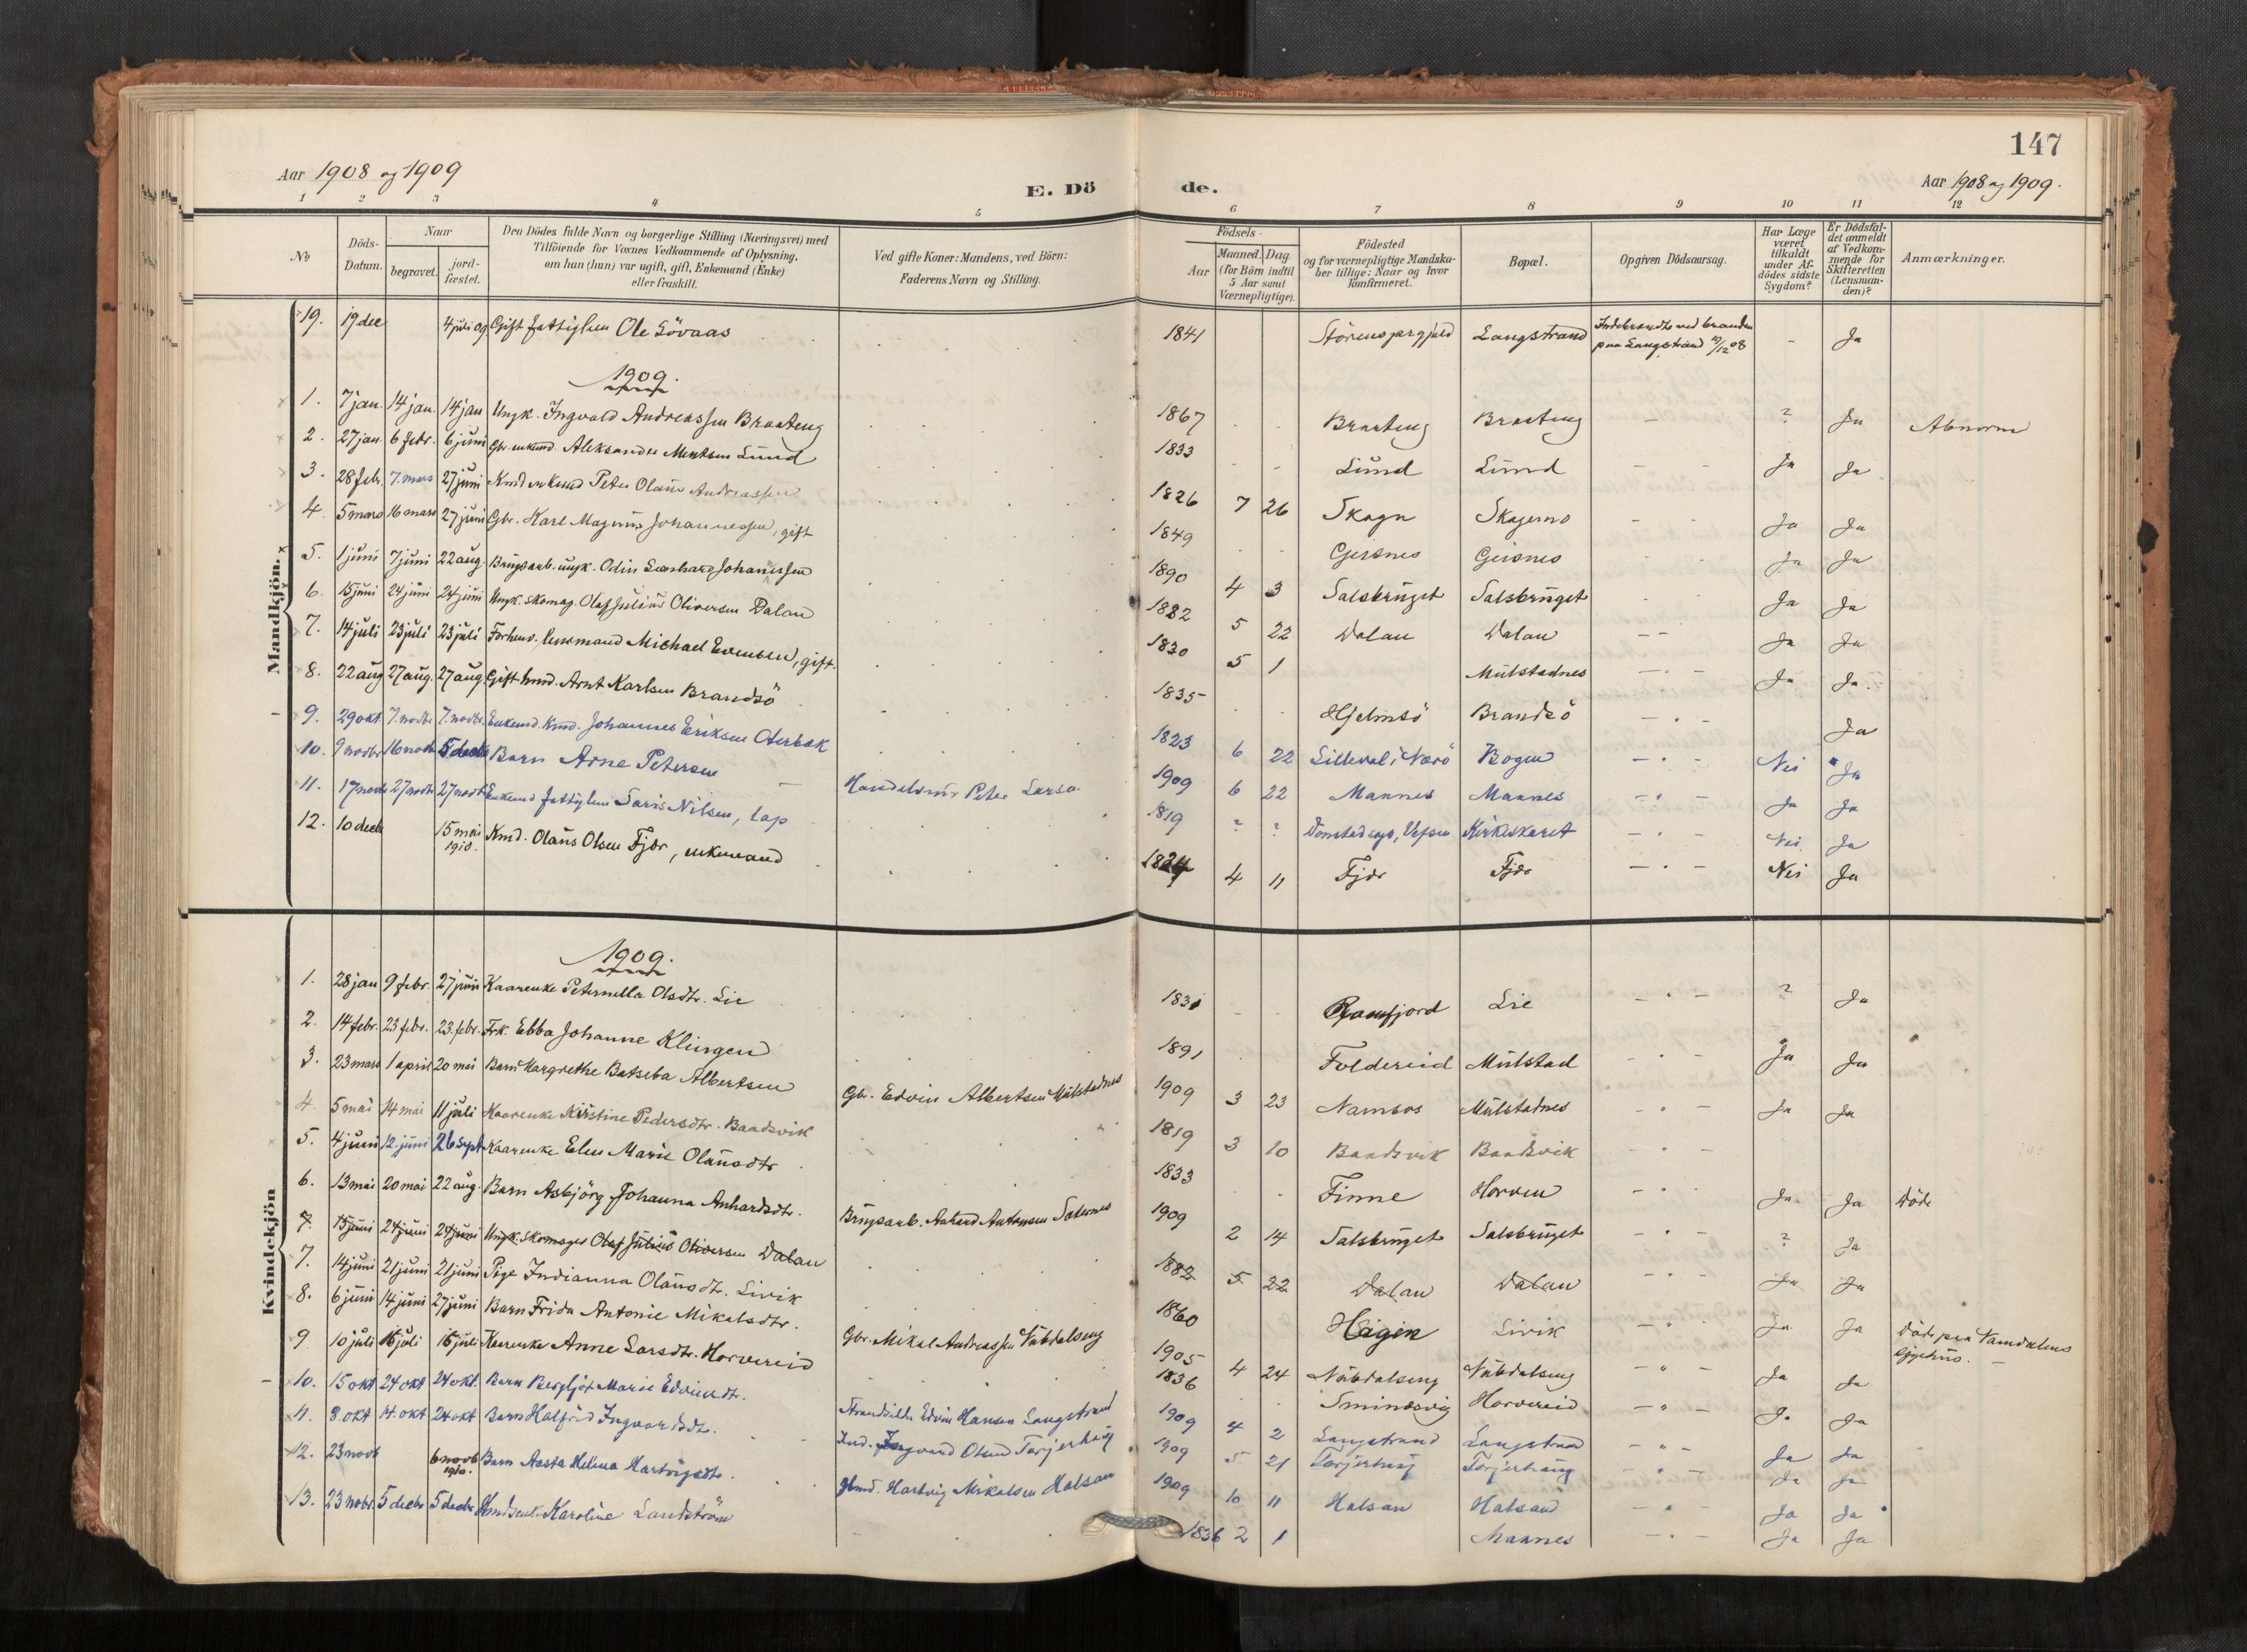 147
Aar 1908 og 1909
E. Dö de.
Aar 1908 og 1909.
1 2 3 4 5 6 7 8 9 10 11 12
No
Döds-Datum.
Naar
begravet.
jord-fæstet.
Den Dödes fulde Navn og borgerlige Stilling (Næringsvei) med
Tilföiende for Voxnes Vedkommende af Oplysning,
om han (hun) var ugift, gift, Enkemand (Enke)
eller fraskilt.
Ved gifte Koner: Mandens, ved Börn:
Faderens Navn og Stilling.
Födsels-
Aar
Maaned. Dag.
(for Börn indtil
5 Aar samt
Værnepligtige).
Födested
og for værnepligtige Mandska-
ber tillige: Naar og hvor
konfirmeret.
Bopæl.
Opgiven Dödsaarsag.
Har Læge
været
tilkaldt
under Af-
dödes sidste
Sygdom?
Er Dödsfal-
det anmeldt
af Vedkom-
mende for
Skifteretten
(Lensman-
den)?
Anmærkninger.
Mandkjön.
19. 19 dec 4 juli 09 Gift fattiglem Ole Lövaas 1841 Störens prgjæld Langstrand Indebrændte ved branden paa Langstrand 19/12 08 - Ja
1909.
1. 7 jan. 14 jan. 14 jan Ungk. Ingvald Andreassen Braateng 1867 Braateng Braateng - ? Ja Abnorm
2. 27 jan. 6 febr. 6 juni Gbr. enkemd. Aleksander Mentsen Lund 1833 - - Lund Lund - - Ja Ja
3. 28 febr. 7. mars 27 juni Kmd enkemd Peter Olaus Andreassen 1826 7 26 Skage Skagemo - - Ja Ja
4. 5 mars 16 mars 27 juni Gbr. Karl Magnus Johannessen, gift 1849 Geisnes Geisnes Ja Ja
5. 1 juni 7 juni 22 aug. Brugsarb. ungk. Odin Leonhard Johanssen 1890 4 3 Salsbruget Salsbruget Ja Ja
6. 15 juni 24 juni 24 juni Ungk. skomag. Olaf Julius Oliversen Dalan 1882 5 22 Dalan Dalan - - Ja Ja
7. 14 juli 23 juli 23 juli Forhenv. lensmand Michael Evensen, gift. 1830 5 1 Mulstadnes - - Ja Ja.
8. 22 aug 27 aug. 27 aug. Gift hmd. Arnt Karlsen Brandsö 1835 Hjelmsö Brandsö - - Ja
9. 29 okt 7. novbr. 7. novbr. Enkemd. Kmd. Johannes Eriksen Oterbak 1823 6 22 Lilleval i Nærö Bogen - - Nei Ja
10. 9 novbr 16 novb 5 decb Barn Arne Petersen - Handelsm. Peter Larsa. 1909 6 22 Mannes Mannes - - Ja Ja
11. 17 novb 27 novb 27 novb Enkemd fattiglem Saris Nilsen, lap 1819 ? ? Vefsen Kirkeskaret - - Nei Ja
12. 10 decb 15 mai 1910. Kmd. Olaus Olsen Fjær, enkemand 1824 4 11 Fjær Fjær - - Nei Ja
Kvindekjön
1909.
1. 28 jan 9 febr. 27 juni Kaarenke Peternella Olsdtr. Lie 1831 - - Ramfjord Lie - - ? Ja
2. 14 febr. 23 febr. 23. febr. Frk. Ebba Johanne Klingen 1891 Foldereid Mulstad - - Ja Ja
3. 23 mars 1 april 20 mai Barn Margrethe Batseba Albertsen Gbr. Edvin Albertsen Mulstadnes 1909 3 23 Namsos Mulstadnes - - Ja Ja
4. 5 mai 14 mai 11 juli Kaarenke Kirstine Pedersdtr. Baadsvik 1819 3 10 Baadsvik Baadsvik - -
5. 4 juni 12. juni 26 sept Kaarenke Elen Marie Olausdtr 1833 Finne Horven - - Ja Ja Döde
6. 13 mai 20 mai 22 aug. Barn Asbjörg Johanna Anhardsdtr. Brugsarb. Anhard Antonsen Salsnes 1909 2 14 Salsbruget Salsbruget - - ? Ja
7. 15 juni 24 juni 24 juni Ungk. skomager Olaf Julius Oliversen Dalan 1882 5 22 Dalan Dalan - - Ja Ja
7. 14 juni 21 juni 21 juni Pige Indianna Olausdtr. Livik 1860 Haugen Livik - - Ja Ja Döde paa Namdalens sygehus.
8. 6 juni 14 juni 27 juni Barn Frida Antonie Mikalsdtr. Gbr. Mikal Andreassen Nubdalseng 1905 4 24 Nubdalseng Nubdalseng - - Ja Ja
9. 10 juli 16 juli 16 juli Kaarenke Anne Larsdtr. Horvereid 1836 Smindsvig Horvereid - - Ja Ja
10. 15 okt 24 okt 24 okt. Barn Bergljot Marie Edvinsdtr. Strandsidder Edvin Hansen Langstrand 1909 4 2 Langstrand Langstrand - - Ja Ja
11. 8. okt 14. okt 24 okt Barn Halfrid Ingvardsdtr. Ind. Ingvard Olsen Torjerhaug 1909 5 21 Torjerhaug Torjerhaug - - Ja Ja
12. 23 novb 6 novb 1910. Barn Aasta Helena Hartvigsdtr. Gbmd. Hartvig Mikalsen Halsan 1909 10 11 Halsan Halsan - - Ja Ja
13. 23 nobr. 5 decbr 5 decbr Karoline Landström 1836 2 1 Mannes - - Ja Ja